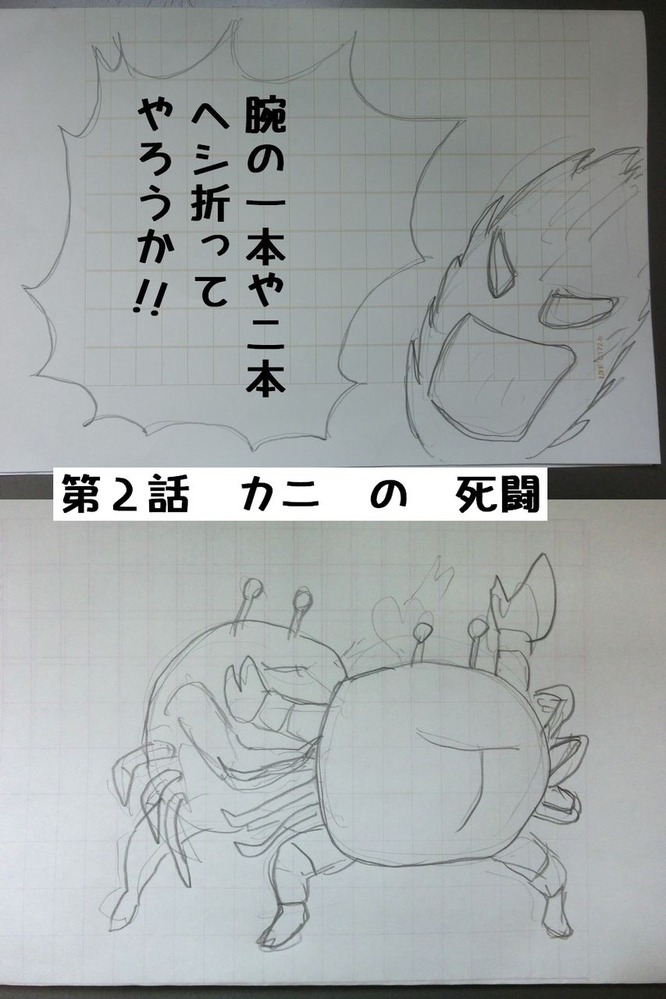 腕の一本や二本
ヘシ折って
やろうか!!
第2話 カニ の 死闘